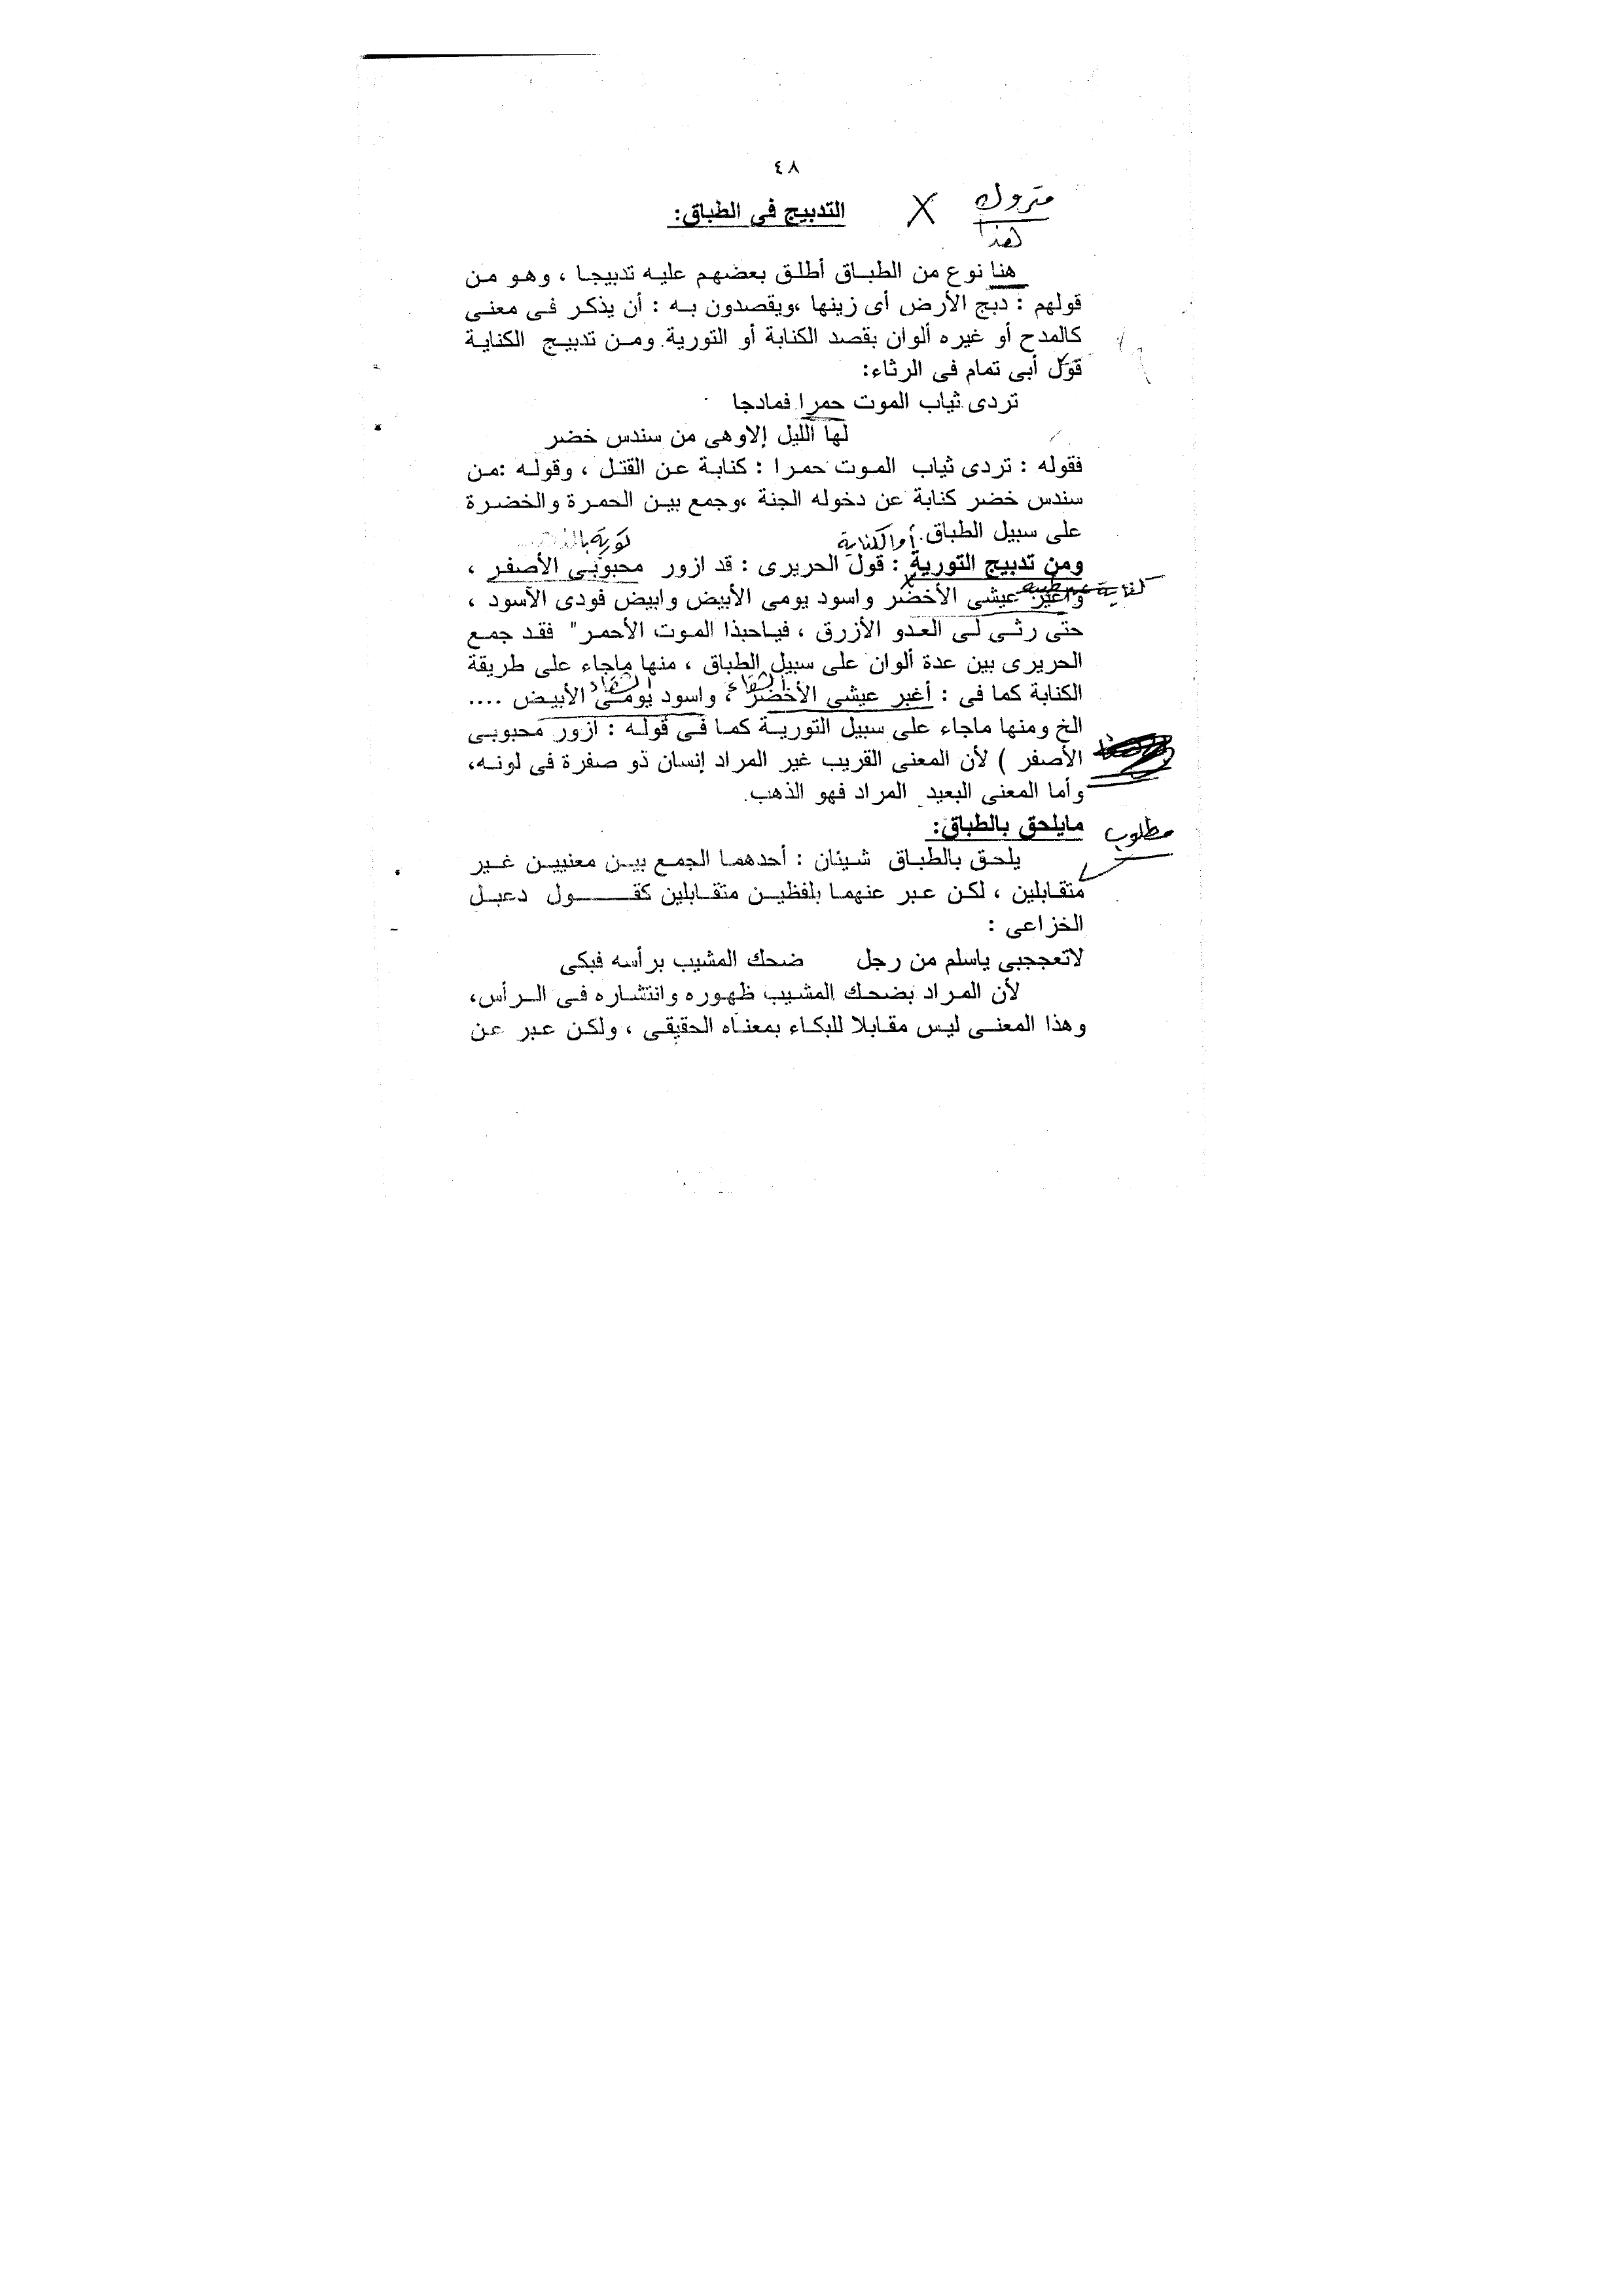 ٤٨
متروك
X
التدبيج فى الطباق:
هنا نوع من الطباق أطلق بعضهم عليه تدبيجا ، وهو من
قولهم : دبج الأرض أى زينها ،ويقصدون به : أن يذكر فى معنى
كالمدح أو غيره ألوان بقصد الكناية أو التورية ومن تدبيج الكناية
قول أبى تمام فى الرثاء:
تردى ثياب الموت حمرا فمادجا
لها الليل إلاوهى من سندس خضر
فقوله : تردى ثياب الموت حمرا : كناية عن القتل ، وقوله :من
سندس خضر كناية عن دخوله الجنة ،وجمع بين الحمرة والخضرة
على سبيل الطباق.
أو الكناية
تورية
ومن تدبيج التورية : قول الحريرى : قد ازور محبوبى الأصفر ،
كناية
واغبر عيشى الأخضر واسود يومى الأبيض وابيض فودى الأسود ،
حتى رثى لى العدو الأزرق ، فياحبذا الموت الأحمر" فقد جمع
الحريرى بين عدة ألوان على سبيل الطباق ، منها ماجاء على طريقة
الكناية كما فى : أغبر عيشى الأخضر ، واسود يومى الأبيض ....
الخ ومنها ماجاء على سبيل التورية كما فى قوله : ازور محبوبى
الأصفر ) لأن المعنى القريب غير المراد إنسان ذو صفرة فى لونه،
وأما المعنى البعيد المراد فهو الذهب.
مطلوب
مايلحق بالطباق:
يلحق بالطباق شيئان : أحدهما الجمع بين معنيين غير
متقابلين ، لكن عبر عنهما بلفظين متقابلين كقول دعبل
الخزاعى :
لاتعججبى ياسلم من رجل ضحك المشيب برأسه فبكى
لأن المراد بضحك المشيب ظهوره وانتشاره فى الرأس،
وهذا المعنى ليس مقابلا للبكاء بمعناه الحقيقى ، ولكن عبر عن